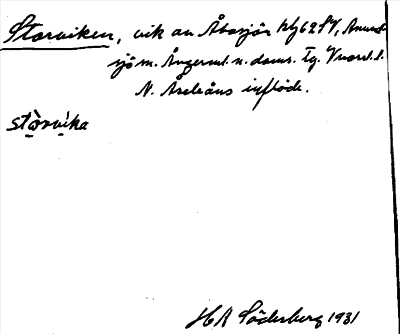 Storviken, vik av Åbosjön blg 62 SV, Anund-
sjö m. Ångerml. n. doms. Tg. V nord. f.
N. Åseleåns inflöde.
stòrvika
HA Söderberg 1931